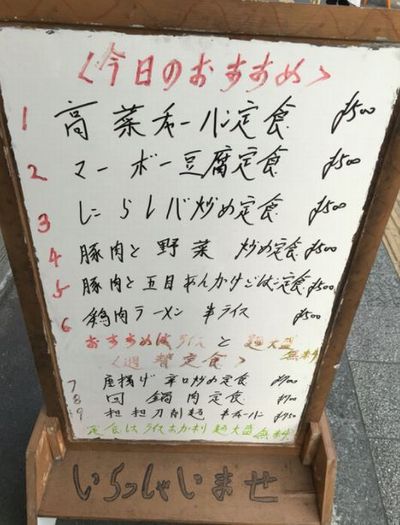 <今日のおすすめ>
1 高菜チャーハン定食 ¥500
2 マーボー豆腐定食 ¥500
3 にらレバ炒め定食 ¥500
4 豚肉と野菜炒め定食 ¥500
5 豚肉と五目あんかけごはん定食 ¥500
6 鶏肉ラーメン 半ライス ¥500
おすすめはライスと麺大盛無料
<週替定食>
7 唐揚げ 辛口炒め定食 ¥700
8 回鍋肉定食 ¥700
9 担担刀削麺 半チャーハン ¥750
定食はライスおかわり 麺大盛無料
いらっしゃいませ